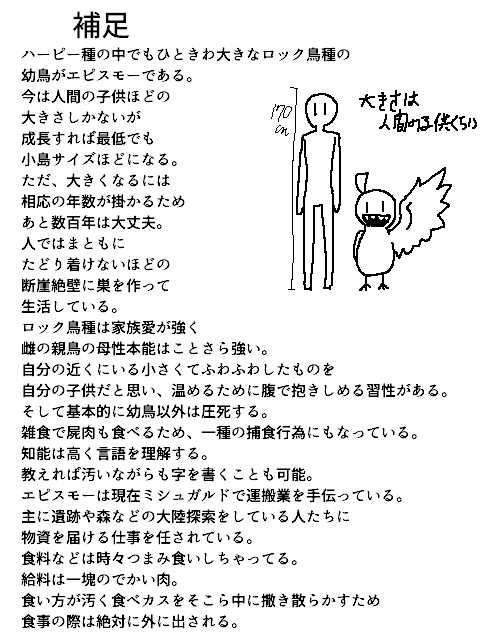 補足
ハーピー種の中でもひときわ大きなロック鳥種の
幼鳥がエピスモーである。
今は人間の子供ほどの
大きさしかないが
成長すれば最低でも
小島サイズほどになる。
ただ、大きくなるには
相応の年数が掛かるため
あと数百年は大丈夫。
人ではまともに
たどり着けないほどの
断崖絶壁に巣を作って
生活している。
ロック鳥種は家族愛が強く
雌の親鳥の母性本能はことさら強い。
自分の近くにいる小さくてふわふわしたものを
自分の子供だと思い、温めるために腹で抱きしめる習性がある。
そして基本的に幼鳥以外は圧死する。
雑食で屍肉も食べるため、一種の捕食行為にもなっている。
知能は高く言語を理解する。
教えれば汚いながらも字を書くことも可能。
エピスモーは現在ミシュガルドで運搬業を手伝っている。
主に遺跡や森などの大陸探索をしている人たちに
物資を届ける仕事を任されている。
食料などは時々つまみ食いしちゃってる。
給料は一塊のでかい肉。
食い方が汚く食べカスをそこら中に撒き散らかすため
食事の際は絶対に外に出される。
170
cm
大きさは
人間の子供くらい